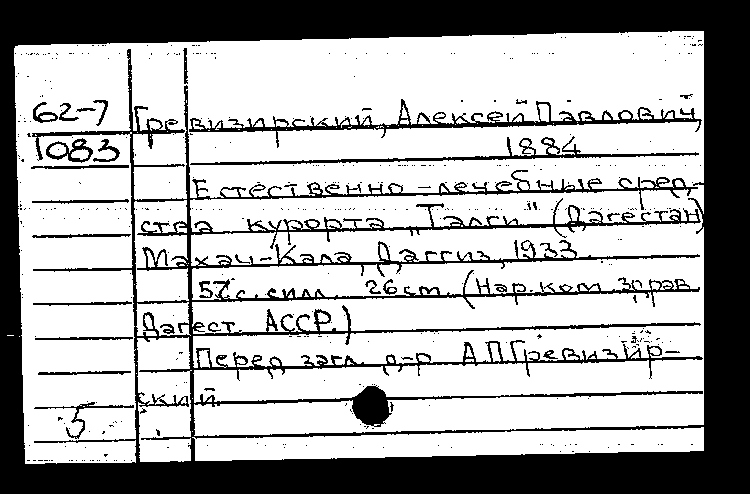 62-7 Гревизирский, Алексей Павлович,
1083 1884
Естественно-лечебные сред-
ства курорта „Талги" (Дагестан)
Махач-Кала, Даггиз, 1933.
57с. с илл. 26 см. (Нар. ком. здрав.
Дагест. АССР.)
Перед загл. д-р А.П. Гревизир-
ский.
5